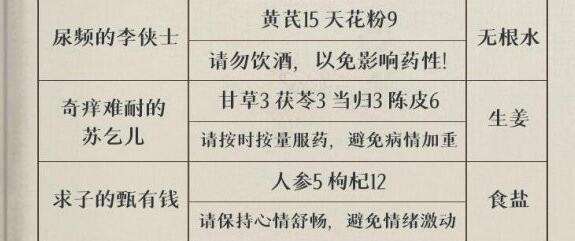 尿频的李侠士
黄芪15 天花粉9
请勿饮酒，以免影响药性!
无根水
奇痒难耐的
苏乞儿
甘草3 茯苓3 当归3 陈皮6
请按时按量服药，避免病情加重
生姜
求子的甄有钱
人参5 枸杞12
请保持心情舒畅，避免情绪激动
食盐